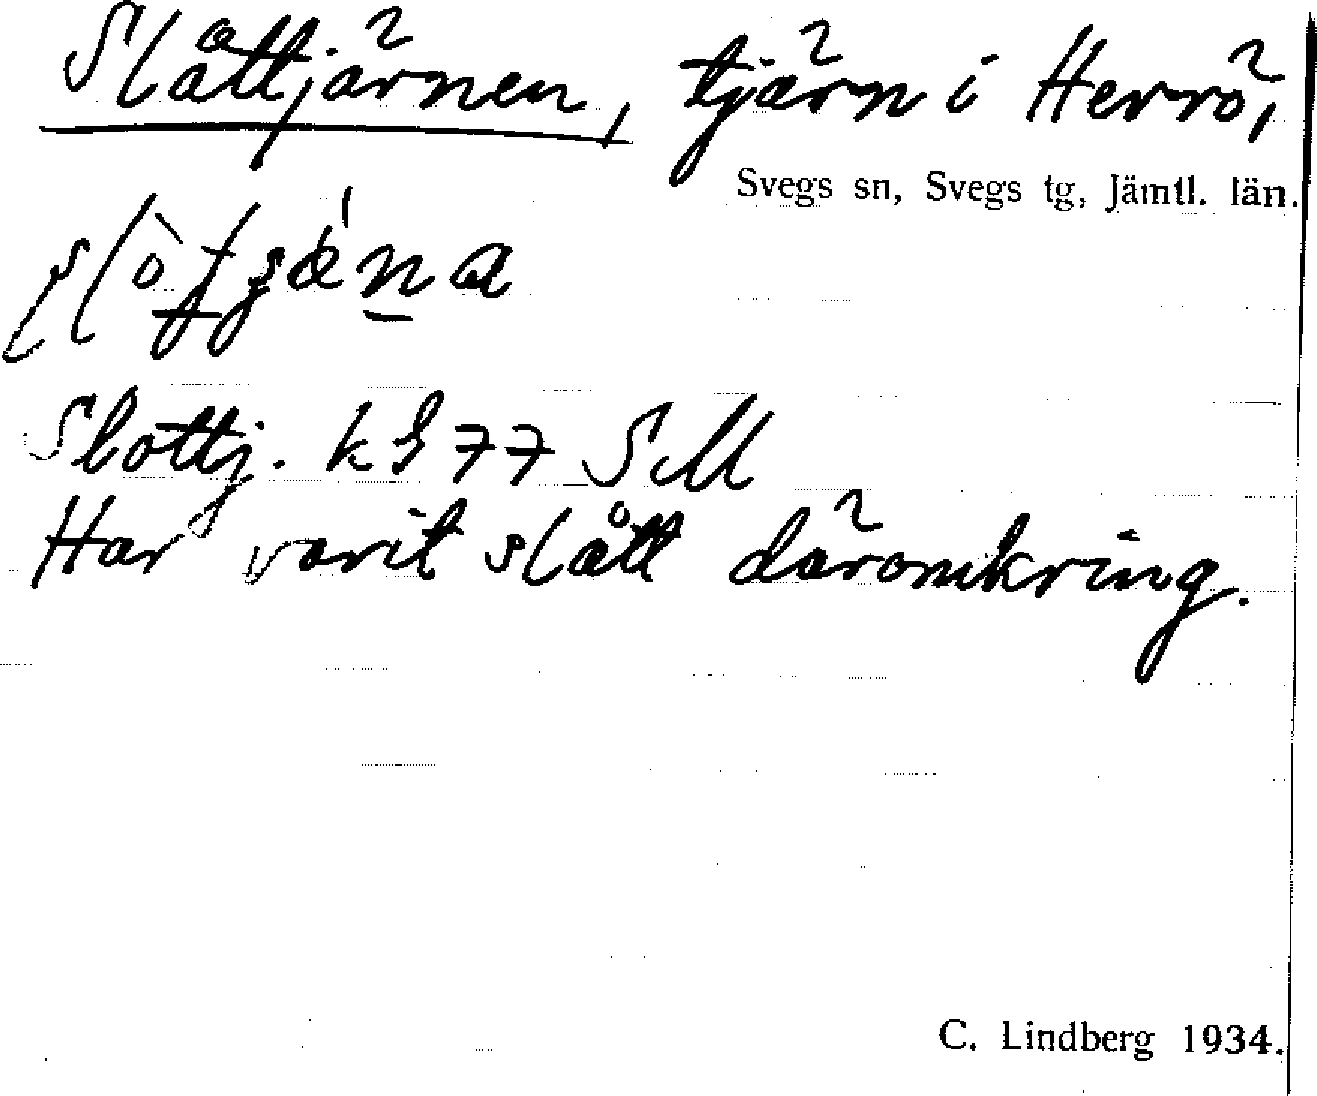 Slåttjärnen, tjärn i Herrö,
Svegs sn, Svegs tg, Jämtl. län.
Slottj. k 77 SM
Har varit slått däromkring.
C. Lindberg 1934.